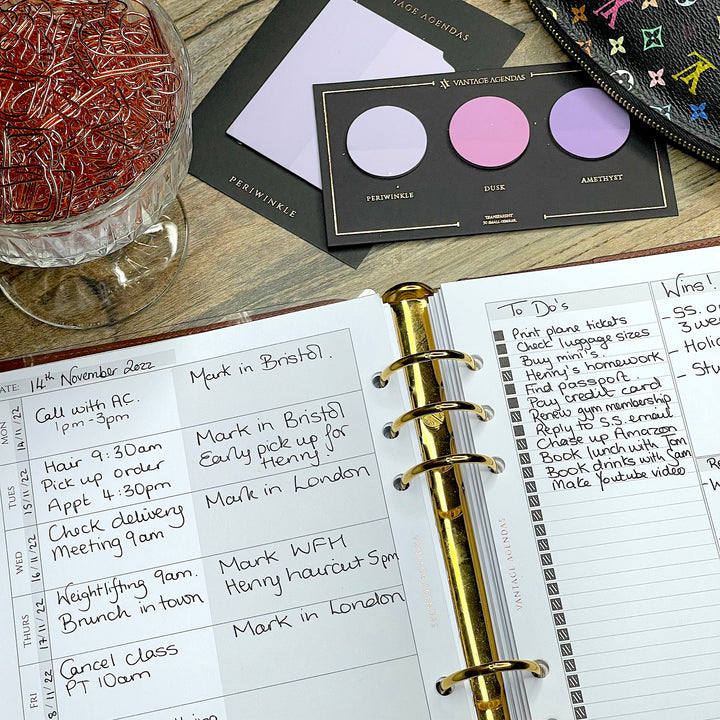 VANTAGE AGENDAS
PERIWINKLE
VANTAGE AGENDAS
PERIWINKLE
DUSK
AMETHYST
TRANSPARENT
DATE: 14th November 2022
MON
14/11/22
Call with AC.
1pm-3pm
Mark in Bristol.
TUES
15/11/22
Hair 9:30am
Pick up order
Appt 4:30pm
Mark in Bristol
Early pick up for
Henny.
WED
16/11/22
Check delivery
Meeting 9am
Mark in London
THURS
17/11/22
Weightlifting 9am.
Brunch in town
Mark WFH
Henny haircut 5pm
FRI
8/11/22
Cancel class
PT 10am
Mark in London
VANTAGE AGENDAS
To Do's
Print plane tickets
Check luggage sizes
Buy mini's.
Henny's homework
Find passport.
Pay credit card
Renew gym membership
Reply to S.S. email
Chase up Amazon
Book lunch with Tom
Book drinks with Sam
Make Youtube video
Wins!
- SS. o
3 we
- Holi
- Stu